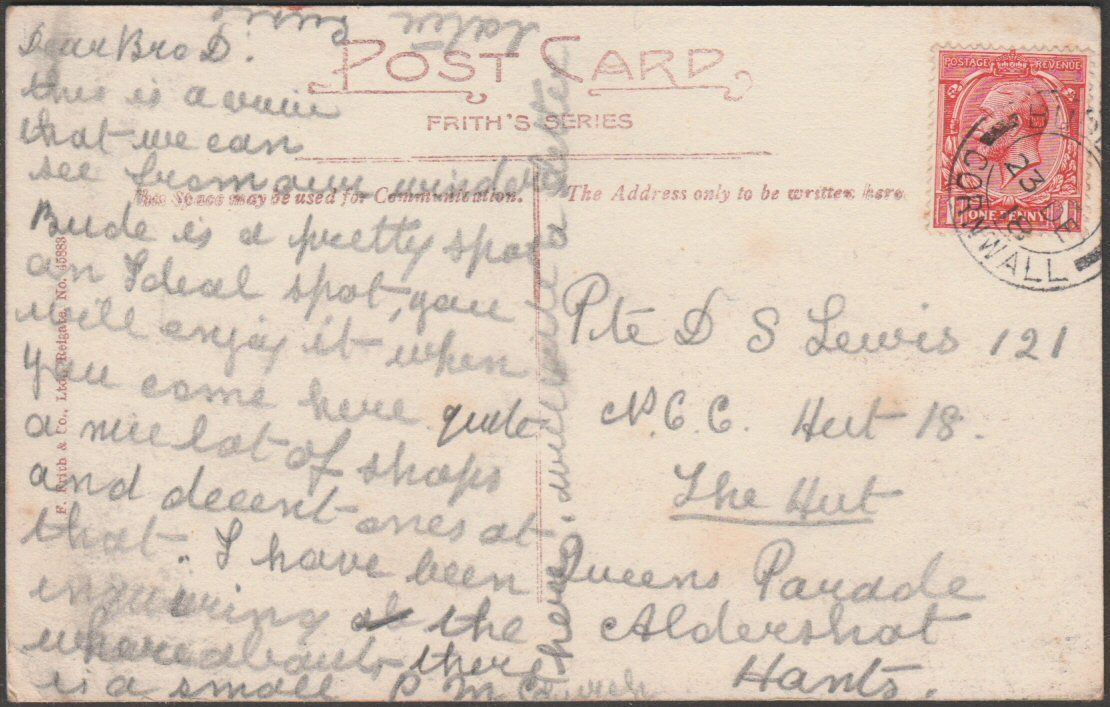 Dear Bro D.
this is a veiw
that we can
see from our window
Bude is a pretty spot
an Ideal spot, you
will enjoy it when
you come here quite
a nice lot of shops
and decent ones at
that. I have been
inquiring at the
whareabouts there
is a small P M Church
here. will write a letter
later
POST CARD
FRITH'S SERIES
This Space may be used for Communication.
The Address only to be written here
F. Frith & Co., Ltd., Reigate. No. 45883
POSTAGE REVENUE
ONE PENNY
23
18
CORNWALL
Pte D S Lewis 121
N.C.C. Hut 18.
The Hut
Queens Parade
Aldershot
Hants.